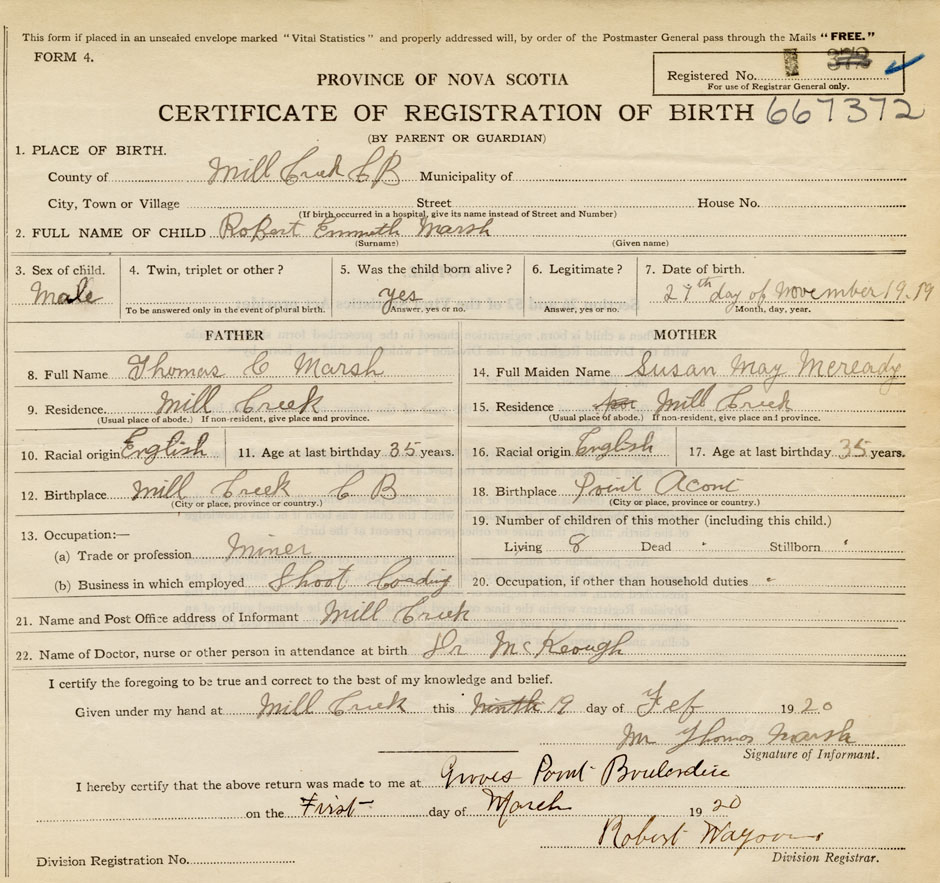 This form if placed in an unsealed envelope marked "Vital Statistics" and properly addressed will, by order of the Postmaster General pass through the Mails "FREE."
FORM 4.
Registered No. 372
For use of Registrar General only.
PROVINCE OF NOVA SCOTIA
CERTIFICATE OF REGISTRATION OF BIRTH 667372
(BY PARENT OR GUARDIAN)
1. PLACE OF BIRTH.
County of Mill Creek C B Municipality of
City, Town or Village Street House No.
(If birth occurred in a hospital, give its name instead of Street and Number)
2. FULL NAME OF CHILD Robert Emmeth Marsh
(Surname) (Given name)
3. Sex of child. 4. Twin, triplet or other? 5. Was the child born alive? 6. Legitimate? 7. Date of birth.
Male yes 27th day of November 19.19
To be answered only in the event of plural birth. Answer, yes or no. Answer, yes or no. Month, day, year.
FATHER MOTHER
8. Full Name Thomas C Marsh 14. Full Maiden Name Susan May Mcready
9. Residence. Mill Creek 15. Residence Mill Creek
(Usual place of abode.) If non-resident, give place and province. (Usual place of abode.) If non-resident, give place and province.
10. Racial origin English 11. Age at last birthday 35 years. 16. Racial origin English 17. Age at last birthday 35 years.
12. Birthplace Mill Creek C B 18. Birthplace Point Acont
(City or place, province or country.) (City or place, province or country.)
13. Occupation:— 19. Number of children of this mother (including this child.)
(a) Trade or profession Miner Living 8 Dead " Stillborn "
(b) Business in which employed Shoot Loading 20. Occupation, if other than household duties "
21. Name and Post Office address of Informant Mill Creek
22. Name of Doctor, nurse or other person in attendance at birth Dr McKeough
I certify the foregoing to be true and correct to the best of my knowledge and belief.
Given under my hand at Mill Creek this ninth 9 day of Feb 1920
Mr Thomas Marsh
Signature of Informant.
I hereby certify that the above return was made to me at Groves Point Boulardrie
on the First day of March 1920
Robert
Division Registrar.
Division Registration No.